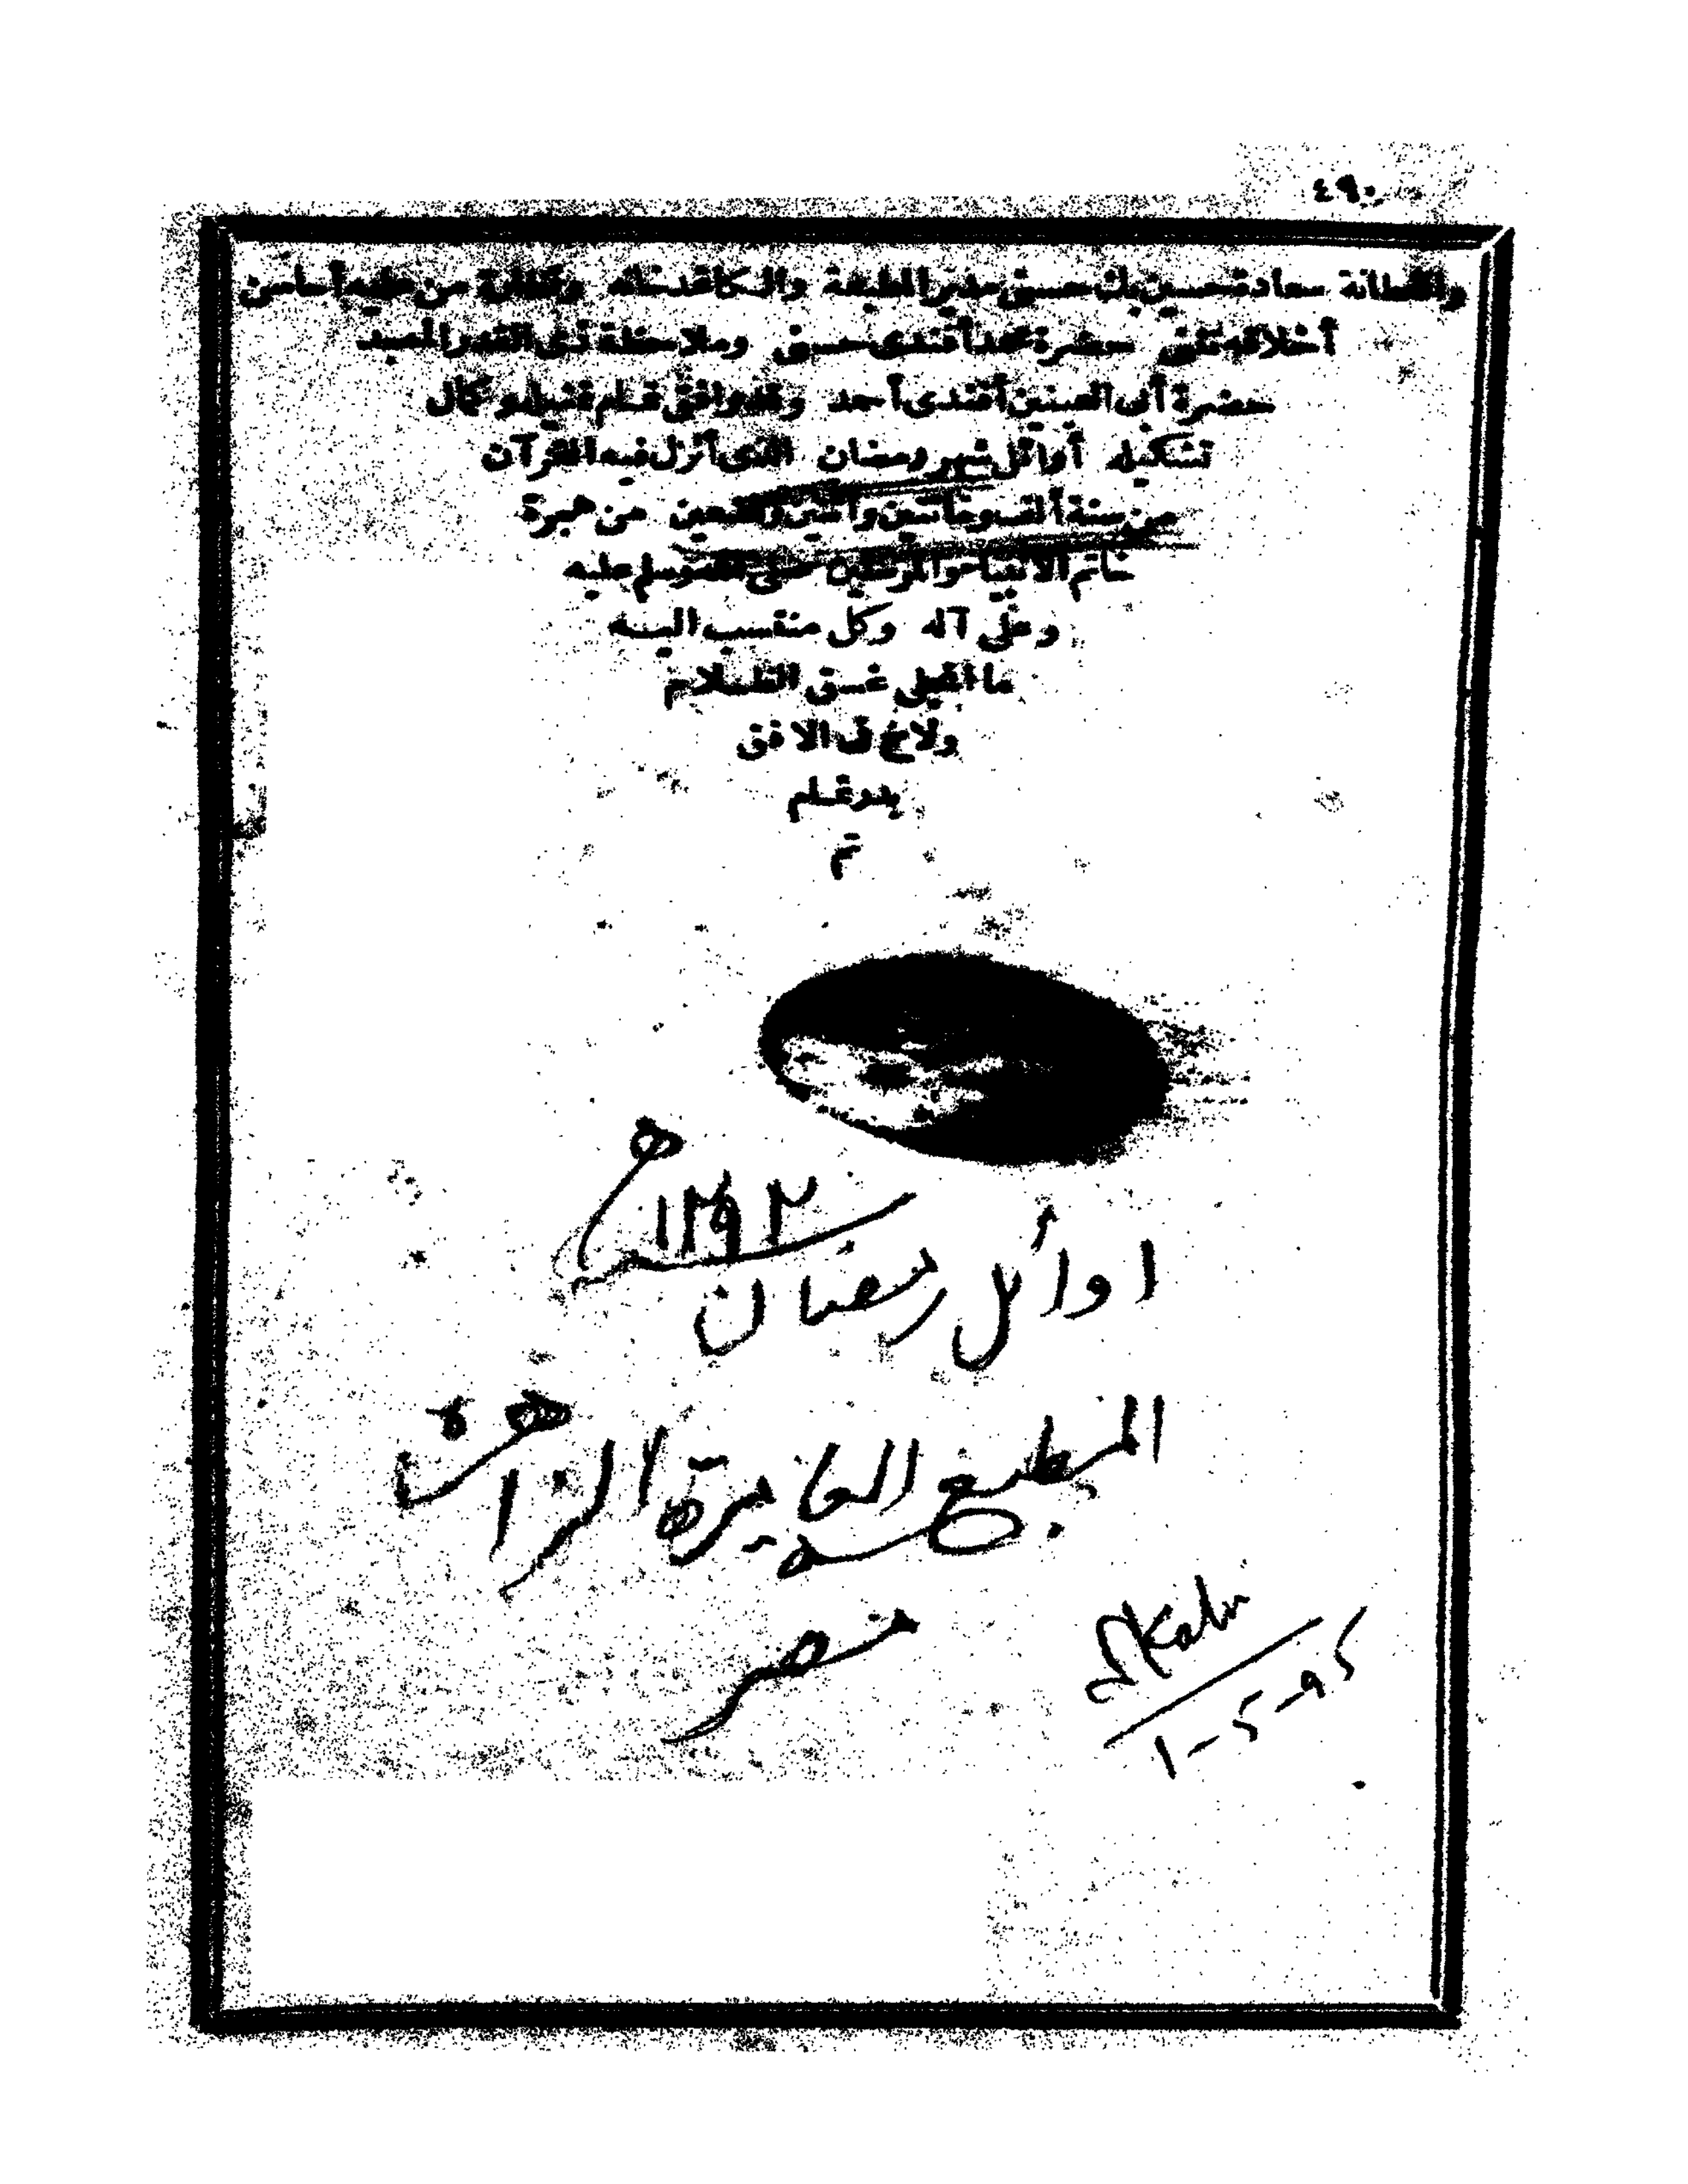 ٤٩٠
والفطانة سعادة حسين بك حسنى مدير المطبعة والكاغدخانه ونظارة من عليه أحاسن
أخلاقه تثنى حضرة محمد أفندى حسنى وملاحظة ذى القدر المجد
حضرة أبى العينين أفندى أحمد وقد وافق تمام وكمال
تشكيله أوائل شهر رمضان الذى أنزل فيه القرآن
من سنة ألف ومائتين واثنين وتسعين من هجرة
خاتم الانبياء والمرسلين صلى الله وسلم عليه
وعلى آله وكل منتسب اليه
ما انجلى غسق الظلام
ولاح فى الافق
بدر تمام
تم
١٢٩٢ هـ
اوائل رمضان
المطبع العامرة الزاهرة
مصر
1-5-95